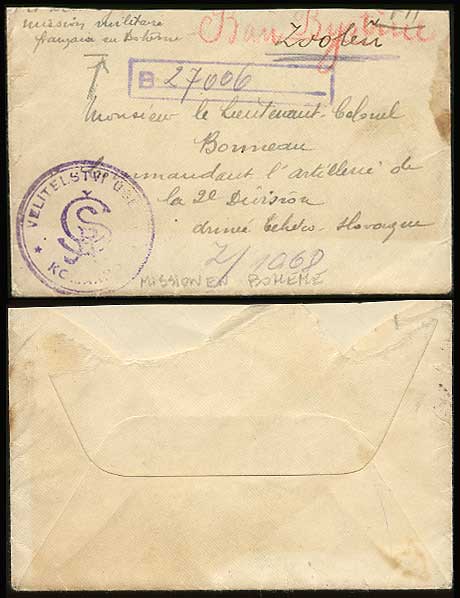 mission militaire
française en Bohême
Ban Bystrice
Zvolen
B 27006
Monsieur le Lieutenant-Colonel
Bonneau
Commandant l'artillerie de
la 2e Division
armée tchéco-slovaque
VELITELSTVÍ
ČS
Z/1068
MISSION EN BOHEME